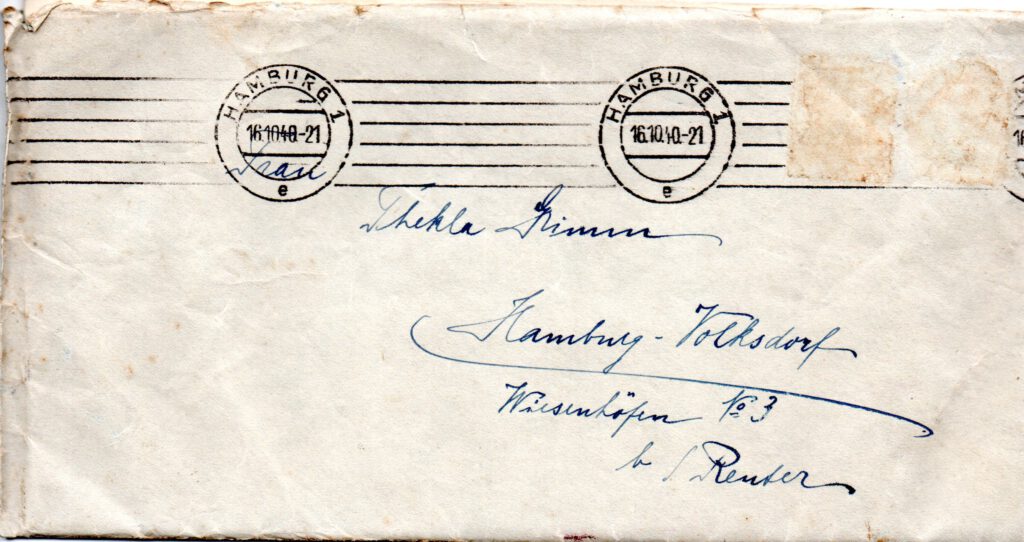 HAMBURG 1
16.10.40.-21
e
HAMBURG 1
16.10.40.-21
e
Frau
Thekla Grimm
Hamburg-Volksdorf
Wiesenhöfen No 3
b/ Reuter